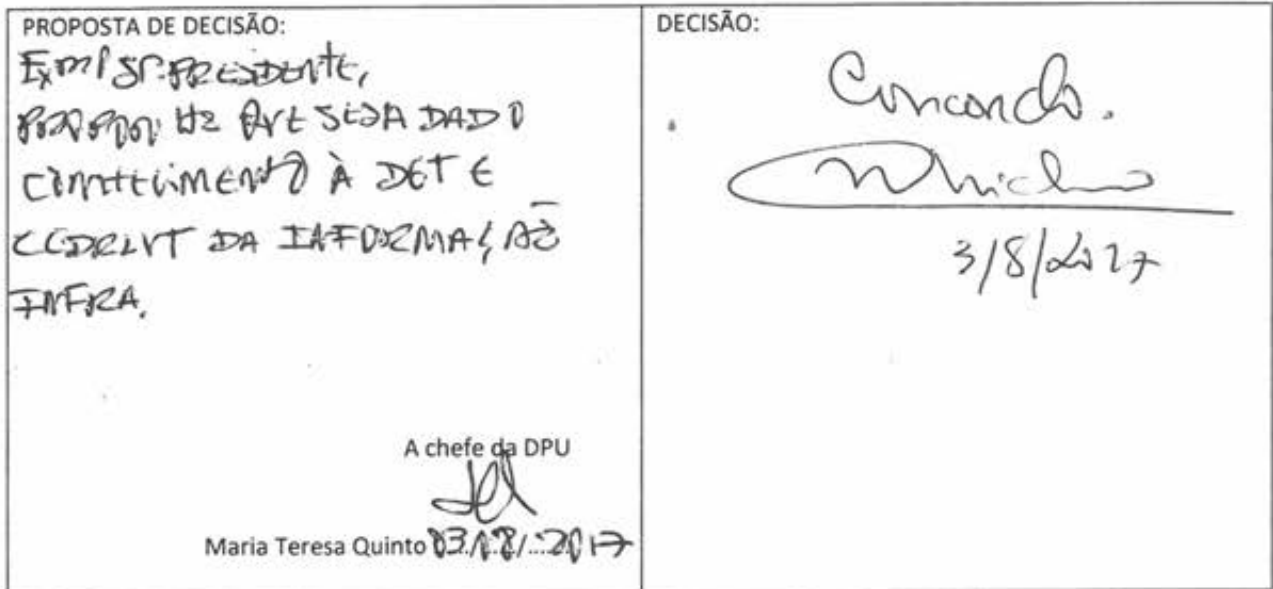 PROPOSTA DE DECISÃO:
Exmº Sr. PRESIDENTE,
QUE SEJA DADO
CONHECIMENTO À DET E
DA INFORMAÇÃO
INFRA.
A chefe da DPU
Maria Teresa Quinto 03/08/2017
DECISÃO:
Concordo.
3/8/2017